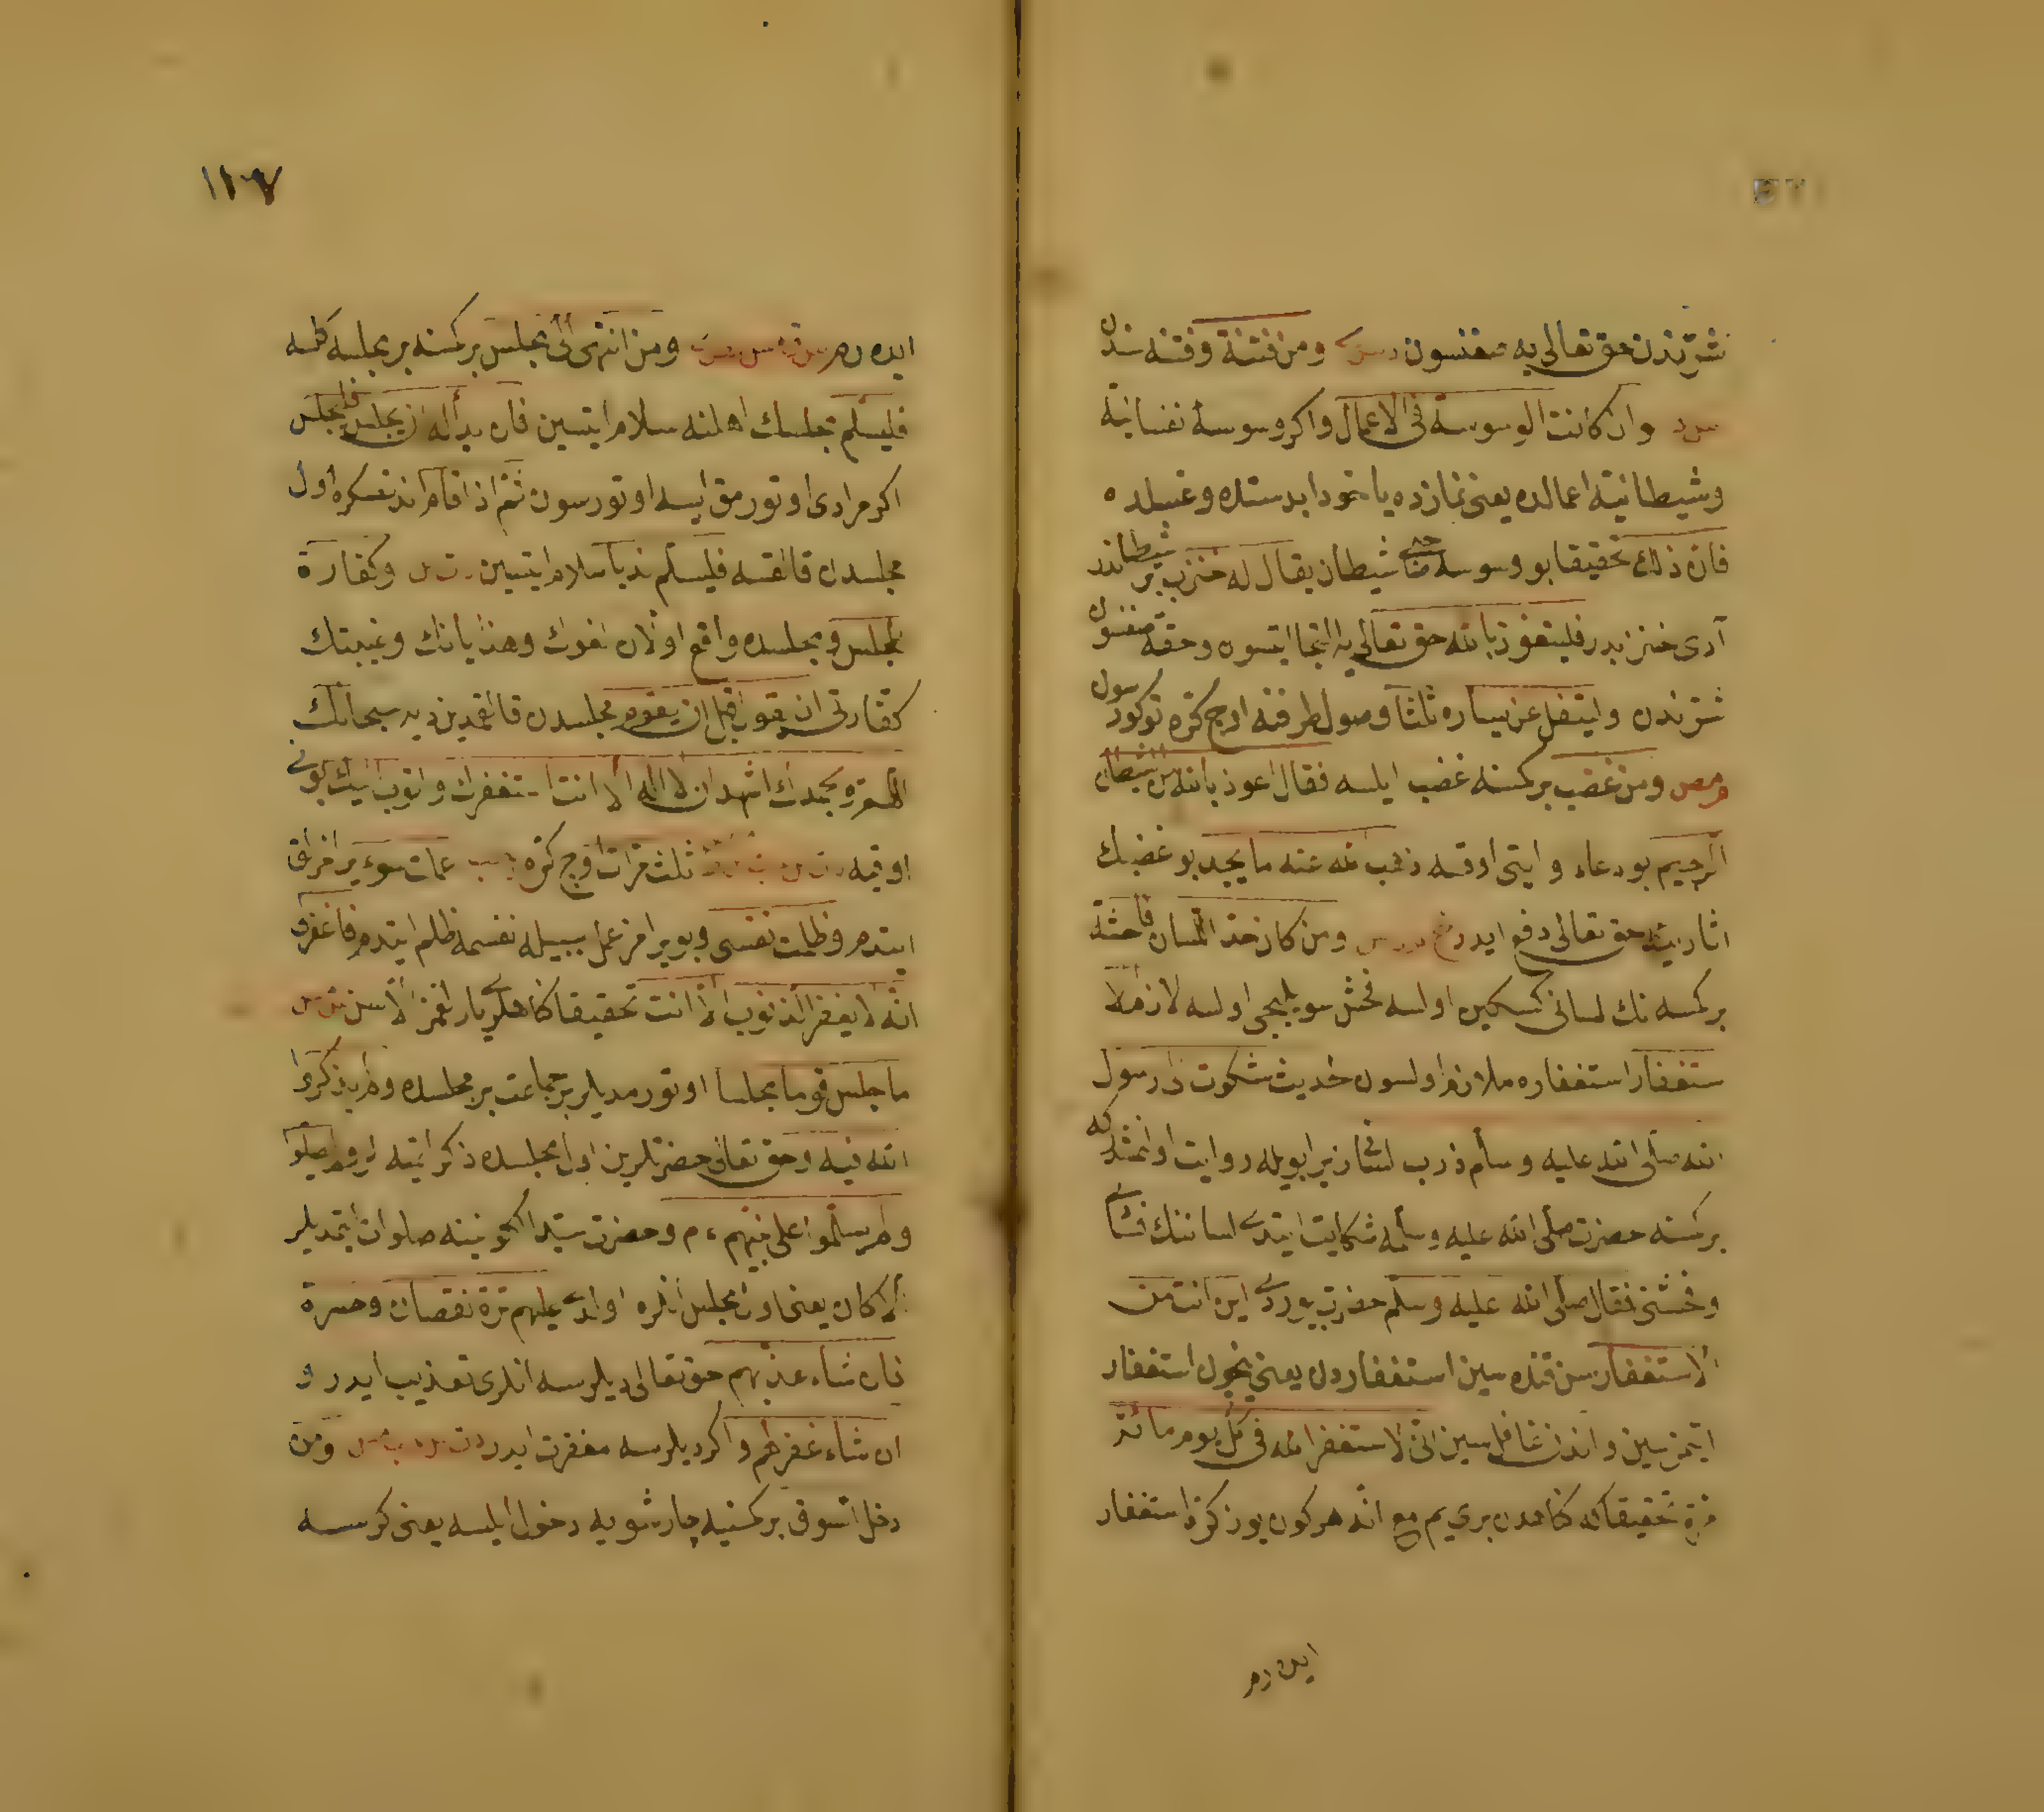 شرندن حق تعالی یه صغنسون ومن فتنة وفتنه سندن
وان كانت الوسوسة فی الاعمال واكر وسوسۀ نفسانیه
وشیطانیه اعمالده یعنی نمازده یاخود ابدستده وغسلده
فان ذلك تحقیقا بو وسوسه شیطان یقال له خنزب بر شیطاندر
آدی خنزبدر فلیتعوذ بالله حق تعالی یه التجا ایتسون وحقه صغنسون
شرندن ولیتفل عن یساره ثلثا وصول طرفنه اوج كره توكورسون
ومن غضب بر كمسنه غضب ایلسه فقال اعوذ بالله من الشیطان
الرجیم بو دعاء وایتی اوقسه ذهب عنه ما یجد بو غضبك
حق تعالی دفع ایدر ومن كان حد اللسان فاحشة
بر كمسه نك لسانی كسكین اولسه فحش سویلیجی اولسه لازم الا
ستغفار استغفاره ملازم اولسون حدیث شكوت الی رسول
الله صلی الله علیه وسلم ذرب لسانی بویله روایت اولنمشدر كه
بر كمسنه حضرت صلی الله علیه وسلمه شكایت ایتدی لساننك
وفحشنی فقال صلی الله علیه وسلم حضرت بیوردی این انت من
الاستغفار سن قنده سین استغفاردن یعنی نیچون استغفار
ایتمزسین واندن غافل سین انی لاستغفر الله فی كل یوم مائة
مرة تحقیقا كه كناهدن بری یم مع انه هر كون یوز كره استغفار
ایدرم
١١٧
ایدرم ومن انتهی الی مجلس بر كمسنه بر مجلسه كلسه
فلیسلم مجلسك اهلنه سلام ایتسین فان بدا له ان یجلس فلیجلس
اكر مرادی اوتورمق ایسه اوتورسون ثم اذا قام اندنصكره اول
مجلسدن قالقسه فلیسلم ندبا سلام ایتسین وكفارة
المجلس ومجلسده واقع اولان لغوك وهذیانك وغیبتك
كفارتی ان یقول قبل ان یقوم مجلسدن قالقمدین دیه سبحانك
اللهم وبحمدك اشهد ان لا اله الا انت استغفرك واتوب الیك بونی
اوقیه ثلث مرات اوج كره عملت سوء یراغزلق
ایتدم وظلمت نفسی وبو یرامز عمل سببیله نفسمه ظلم ایتدم فاغفرلی
انه لا یغفر الذنوب الا انت تحقیقا كناهلری یارلغمز الا سن
ما جلس قوم مجلسا اوتورمدیلر بر جماعت بر مجلسده ولم یذكروا
الله فیه وحق تعالی حضرتلرین اول مجلسده ذكر ایتیه لر ولم یصلوا
ولم یسلموا علی نبیهم م وحضرت سید الكونینه صلوات ایتمدیلر
الا كان یعنی اول مجلس انلره اولدی علیهم ترة نقصان وحسرة
فان شاء عذبهم حق تعالی دیلرسه انلری تعذیب ایدر و
ان شاء غفر لهم واكر دیلرسه مغفرت ایدر ومن
دخل السوق بر كمسنه چارشویه دخول ایلسه یعنی كرسه